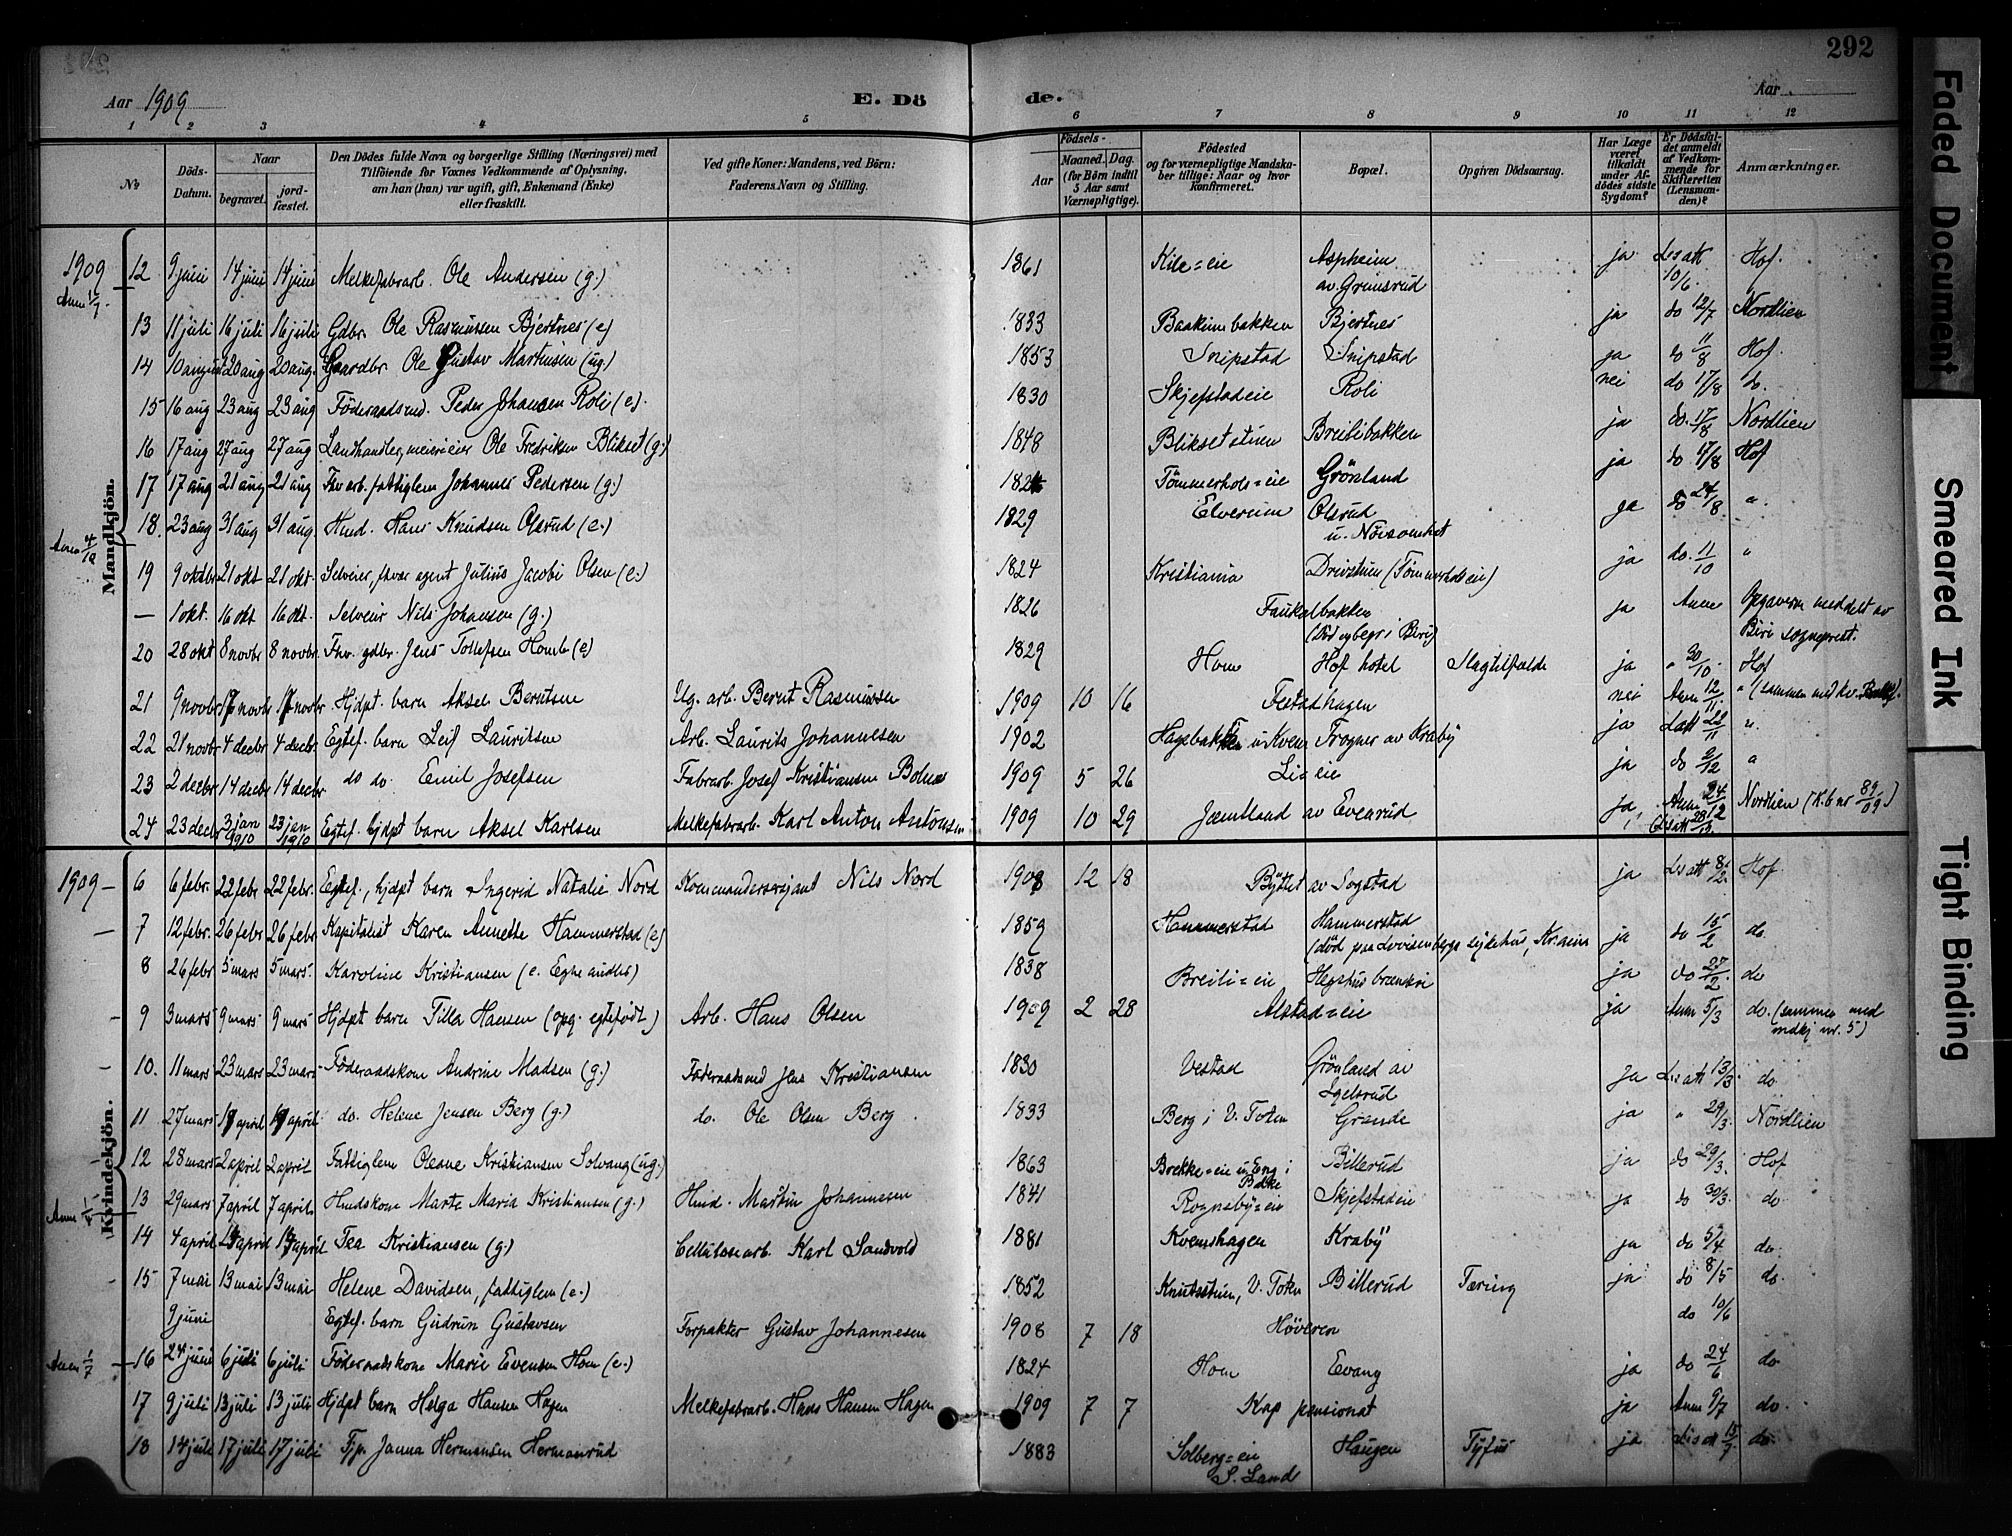 292
Aar 1909
E. Dö
de.
Aar
1 2 3 4 5 6 7 8 9 10 11 12
No
Döds-Datum.
Naar
begravet.
jord-fæstet.
Den Dödes fulde Navn og borgerlige Stilling (Næringsvei) med
Tilföiende for Voxnes Vedkommende af Oplysning,
om han (hun) var ugift, gift, Enkemand (Enke)
eller fraskilt.
Ved gifte Koner: Mandens, ved Börn:
Faderens Navn og Stilling.
Födsels-
Aar
Maaned. Dag.
(for Börn indtil
5 Aar samt
Værnepligtige).
Födested
og for værnepligtige Mandska-
ber tillige: Naar og hvor
Konfirmeret.
Bopæl.
Opgiven Dödsaarsag.
Har Læge
været
tilkaldt
under Af-
dödes sidste
Sygdom?
Er Dödsfal-
det anmeldt
af Vedkom-
mende for
Skifteretten
(Lensman-
den)?
Anmærkninger.
Mandkjön.
1909 12 9 juni 14 juni 14 juni Melkefabrarb. Ole Andersen (g.) 1861 Kile=eie Aspheim av Grimsrud ja Lsatt 10/6. Hof.
Anm 1/7.
13 11 juli 16 juli 16 juli Gdbr. Ole Rasmussen Bjertnes (e) 1833 Baakimbakken Bjertnes ja do 12/7 Nordlien
14 10 august 20 aug 20 aug. Gaardbr. Ole Gustav Martinsen (ug.) 1853 Snipstad Snipstad ja do 11/8 Hof.
15 16 aug 23 aug 23 aug Föderaadsmd. Peder Johansen Roli (e). 1830 Skjefstadeie Roli nei do 17/8 do.
16 17 aug 27 aug 27 aug Landhandler, meierieier Ole Fredriksen Blikset (g.) 1848 Bliksetstuen Breilibakken ja do. 17/8 Nordlien
17 17 aug 21 aug 21 aug Fhv arb. fattiglem Johannes Pedersen (g.) Tömmerhols=eie Grönland ja do 17/8 Hof
18. 23 aug 31 aug 31 aug Hmd. Hans Knudsen Olsrud (e.) 1829 Elverum Olsrud ja do 24/8. "
Anm 4/10
19 9 oktbr 21 okt 21 okt. Selveier, fhvær agent Julius Jacobi Olsen (e.) 1824 Kristiania Drivstuen (Tömmerholseie) ja do. 11/10 "
— 1 okt. 16 okt 16 okt. Selveier Nils Johansen (g.) 1826 Faukalbakken (Död og begr i Biri) ja Anm Opgaven meddelt av Biri sogneprest.
20 28 okt 8 novbr 8 novbr. Fhv. gdbr. Jens Tollefsen Homb (e) 1829 Hom Hof hotel Slagtilfælde ja " 30/10. Hof
21 9 novbr 17 novbr 17 novbr Hjdpt. barn Aksel Berntsen Ug. arb. Bernt Rasmussen 1909 10 16 Festadhagen nei Anm 12/11. " (sammen med kv.
22 21 novbr 4 decbr 4 decbr. Egtef. barn Leif Lauritsen Arb. Laurits Johannesen 1902 Hagebakken u Kvem Trogner av Kraby ja Lsatt 22/11 "
23 2 decbr 14 decbr 14 decbr do do. Emil Josefsen Fabrarb. Josef Kristiansen Bolnes 1909 5 26 Lieie ja do 2/12 "
24 23 decbr 3 jan 1910 23 jan 1910 Egtef. hjdpt barn Aksel Karlsen Melkefabrarb. Karl Anton Antonsen 1909 10 29 Jemtland av Evenrud ja, Anm 24/12 (Lsatt 28/12 Nordlien (K.b nr 89/09.)
Kvindekjön.
1909 — 6 6 febr. 22 febr 22 febr. Egtef., hjdpt barn Ingerid Natalie Nord Kommandersersjant Nils Nord 1908 12 18 Byttet av Sogstad ja Lsatt 8/2. Hof
— 7 12 febr. 26 febr 26 febr Kapitalist Karen Annette Hammerstad (e) 1859 Hammerstad Hammerstad (död paa Lovisenbergs sykehus, Kr.ania ja do 15/2 do
8 26 febr 5 mars 5 mars. Karoline Kristiansen (e. Egne midler) 1838 Breili=eie Hegshus brænderi ja do 27/2. do
- 9 3 mars 9 mars 9 mars Hjdpt barn Tilla Hansen (opg. egtefödt) Arb. Hans Olsen 1909 2 28 Alstad=eie ja Anm 5/3 do. (sammen med mdkj nr. 5)
- 10. 11 mars 23 mars 23 mars Föderaadskone Andrine Madsen (g.) Föderaadsmd Jens Kristiansen 1830 Vestad Grönland av Lgelsrud ja Lsatt 13/3. do
11 27 mars 17 april 17 april do. Helene Jensen Berg (g.) do. Ole Olsen Berg 1833 Berg i V. Toten Grande ja " 29/3. Nordlien
12 28 mars 2 april 2 april Fattiglem Oleane Kristiansen Solvang (ug.) 1863 Brekke=eie u Eng i Balke Billerud ja do 29/3. Hof
Anm 1/4 13 29 mars 7 april 7 april Husdskone Marte Maria Kristiansen (g.) Hmd. Martin Johannesen 1841 Rognsby=eie Skjefstadeie ja do 30/3. do
14 4 april 14 april 14 april Tea Kristiansen (g.) Cellulosearb. Karl Sandvold 1881 Kvemshagen Kraby ja do 5/4 do.
15 7 mai 13 mai 13 mai Helene Davidsen, fattiglem (e.) 1852 Knutsstuen, V. Toten Billerud Tæring ja do 8/5 do.
9 juni Egtef. barn Gudrun Gustavsen Forpakter Gustav Johannesen 1908 7 18 Höveren do 10/6
Anm 1/7 16 24 juni 6 juli 6 juli Föderaadskone Marie Evensen Hom (e.) 1824 Hom Evang ja do 24/6 do
17 9 juli 13 juli 13 juli Hjdpt barn Helga Hansen Hagen Melkefabrarb. Hans Hansen Hagen 1909 7 7 Kap pensionat ja Anm 9/7 do.
18 14 juli 17 juli 17 juli Tjp. Janna Hermansen Hermanrud 1883 Solberg=eie S. Land Haugen Tyfus ja Lsatt 15/7. do.
Faded Document
Smeared Ink
Tight Binding